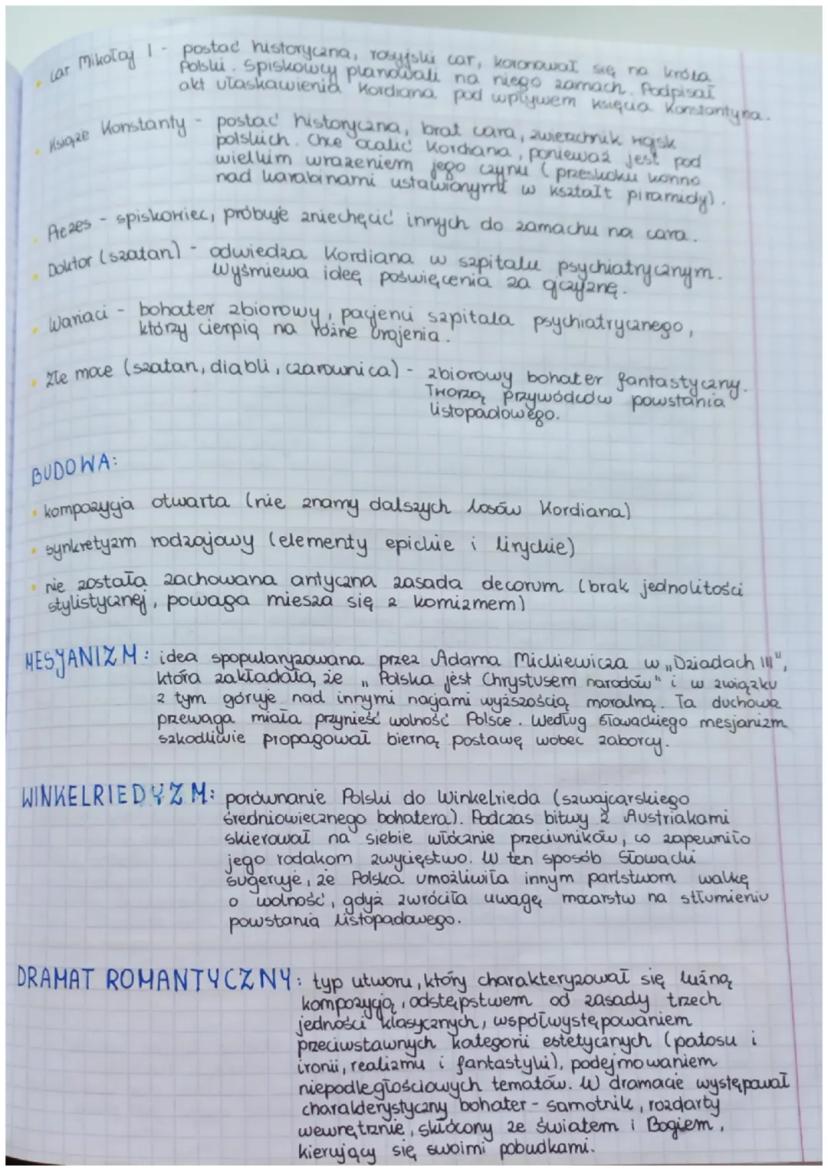 • Car Mikołaj I - postać historyczna, rosyjski car, koronował się na króla
Polski. Spiskowcy planowali na niego zamach. Podpisał
akt ułaskawienia Kordiana pod wpływem księcia Konstantyna.
• Książe Konstanty - postać historyczna, brat cara, zwierzchnik wojsk
polskich. Chce ocalić Kordiana, ponieważ jest pod
wielkim wrażeniem jego czynu (przeskoku konno
nad karabinami ustawionymi w kształt piramidy).
• Prezes - spiskowiec, próbuje zniechęcić innych do zamachu na cara.
• Doktor (szatan) - odwiedza Kordiana w szpitalu psychiatrycznym.
Wyśmiewa ideę poświęcenia za ojczyznę.
• Wariaci - bohater zbiorowy, pacjenci szpitala psychiatrycznego,
którzy cierpią na różne urojenia.
• Złe moce (szatan, diabli, czarownica) - zbiorowy bohater fantastyczny.
Tworzą przywódców powstania
listopadowego.
BUDOWA:
• kompozycja otwarta (nie znamy dalszych losów Kordiana)
• synkretyzm rodzajowy (elementy epickie i liryckie)
• nie została zachowana antyczna zasada decorum (brak jednolitości
stylistycznej, powaga miesza się z komizmem)
MESJANIZM: idea spopularyzowana przez Adama Mickiewicza w „Dziadach III",
która zakładała, że „Polska jest Chrystusem narodów" i w związku
z tym góruje nad innymi nacjami wyższością moralną. Ta duchowa
przewaga miała przynieść wolność Polsce. Według Słowackiego mesjanizm
szkodliwie propagował bierną postawę wobec zaborcy.
WINKELRIEDYZM: porównanie Polski do Winkelrieda (szwajcarskiego
średniowiecznego bohatera). Podczas bitwy z Austriakami
skierował na siebie włócznie przeciwników, co zapewniło
jego rodakom zwycięstwo. W ten sposób Słowacki
sugeruje, że Polska umożliwiła innym państwom walkę
o wolność, gdyż zwróciła uwagę mocarstw na stłumieniu
powstania listopadowego.
DRAMAT ROMANTYCZNY: typ utworu, który charakteryzował się luźną
kompozycją, odstępstwem od zasady trzech
jedności klasycznych, współwystępowaniem
przeciwstawnych kategorii estetycznych (patosu i
ironii, realizmu i fantastyki), podejmowaniem
niepodległościowych tematów. W dramacie występował
charakterystyczny bohater - samotnik, rozdarty
wewnętrznie, skłócony ze światem i Bogiem,
kierujący się swoimi pobudkami.